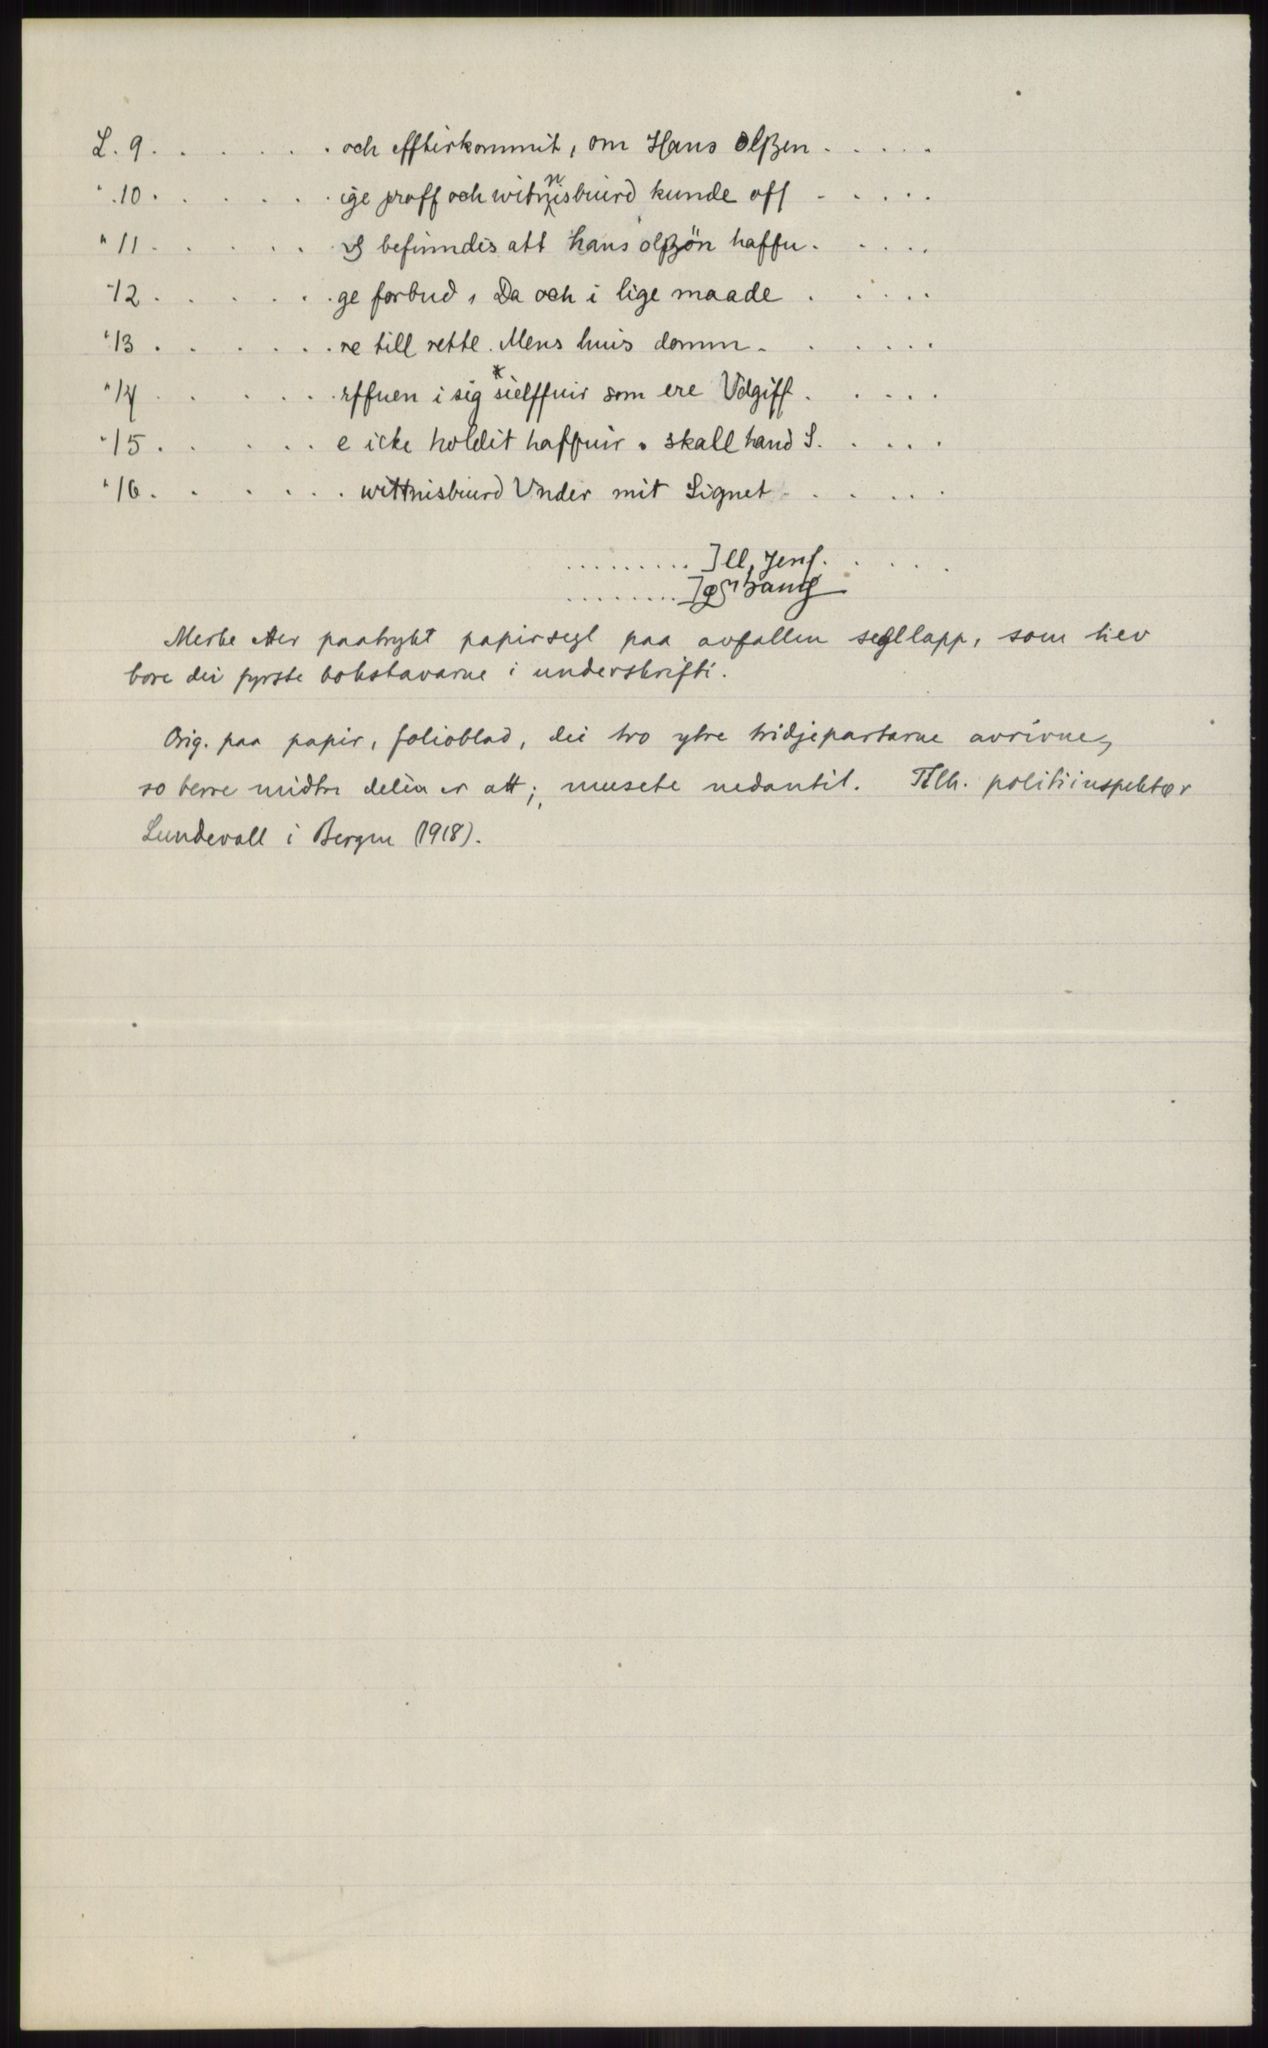 L. 9 . . . . . . . och effterkommit, om Hans Olßen . . . . .
" 10 . . . . . . . ige proff och witnisbiurd kunde off . . . . .
" 11 . . . . . . befinndis att hans olßön haffu . . . . .
" 12 . . . . . . . ge forbud, Da och i lige maade . . . . .
" 13 . . . . . . . re till rette. Mens huis domm . . . . . .
" 14 . . . . . . . rffuen i sig * sielffuir som ere Vdgiff . . . . .
" 15 . . . . . . e icke holdit haffuir . skall hand S . . . . .
" 16 . . . . . . . wittnisbiurd Vnder mit Signet . . . . . .
. . . . . . . . . ] ll, Jens . . . . . .
. . . . . . . . ]
Merke etter paatrykt papirsegl paa avfallen segllapp, som hev
bore dei fyrste bokstavarne i underskrifti.
Orig. paa papir, folioblad, dei tvo ytre tridjepartarne avrivne,
so berre midtre delen er att; musete nedantil. Tilh. politiinspektør
Lundevall i Bergen (1918).